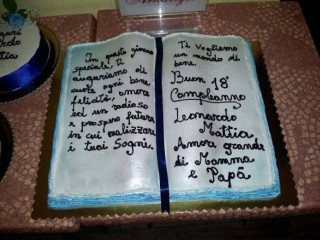 Auguri
Leonardo
Mattia
In questo giorno
speciale, Ti
auguriamo di
cuore ogni bene,
felicità, amore
ed un radioso
e prospero futuro
in cui realizzare
i tuoi Sogni.
Ti vogliamo
un mondo di
bene.
Buon 18°
Compleanno
Leonardo
Mattia
Amore grande
di Mamma
e Papà